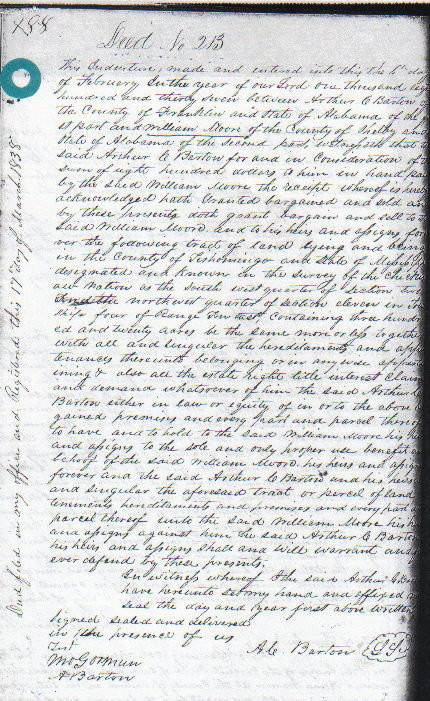 Deed No 213
This Indenture, made and entered into this the
of February In the year of our Lord one thousand
hundred and thirty seven between Arthur C Barton of
the County of Franklin and State of Alabama of the
part and William Moore of the County of and
State of Alabama of the second part witnesseth that
said Arthur C Barton for and in Consideration of
sum of eight hundred dollars to him in hand
by the said William Moore the receipt whereof is
acknowledged hath Granted bargained and sold
by these presents doth grant bargain and sell to
Said William Moore and to his heirs and assigns for
ever the following tract of land lying and being
in the County of Tishomingo and State of
designated and known in the survey of the
Nation as the South west quarter of section
And the northwest quarter of section eleven in
ship four of Range Ten east Containing three
ed and twenty acres be the same more or less
With all and singular the hereditaments and
tenances thereunto belonging or in any wise
& also all the estate right title interest
and demand whatsoever of him the said Arthur
Barton either in law or equity of in or to the above
gained premises and every part and parcel
to have and to hold to the said William Moore his
and assigns to the sole and only proper use benefit
behoof of the said William Moore his heirs and
forever and the said Arthur C Barton and his heirs
and singular the aforesaid tract or parcel of land
tenements hereditaments and premises and every part
parcel thereof unto the said William Moore his
and assigns against him the said Arthur C Barton
his heirs and assigns shall and will warrant and
ever defend by these presents.
In witness whereof I the said Arthur C
have hereunto set my hand and affixed
seal the day and year first above written
Signed sealed and delivered
in the presence of us
Test
A C Barton
A Barton
Deed filed in my office and Registered this 17 day of March 1838